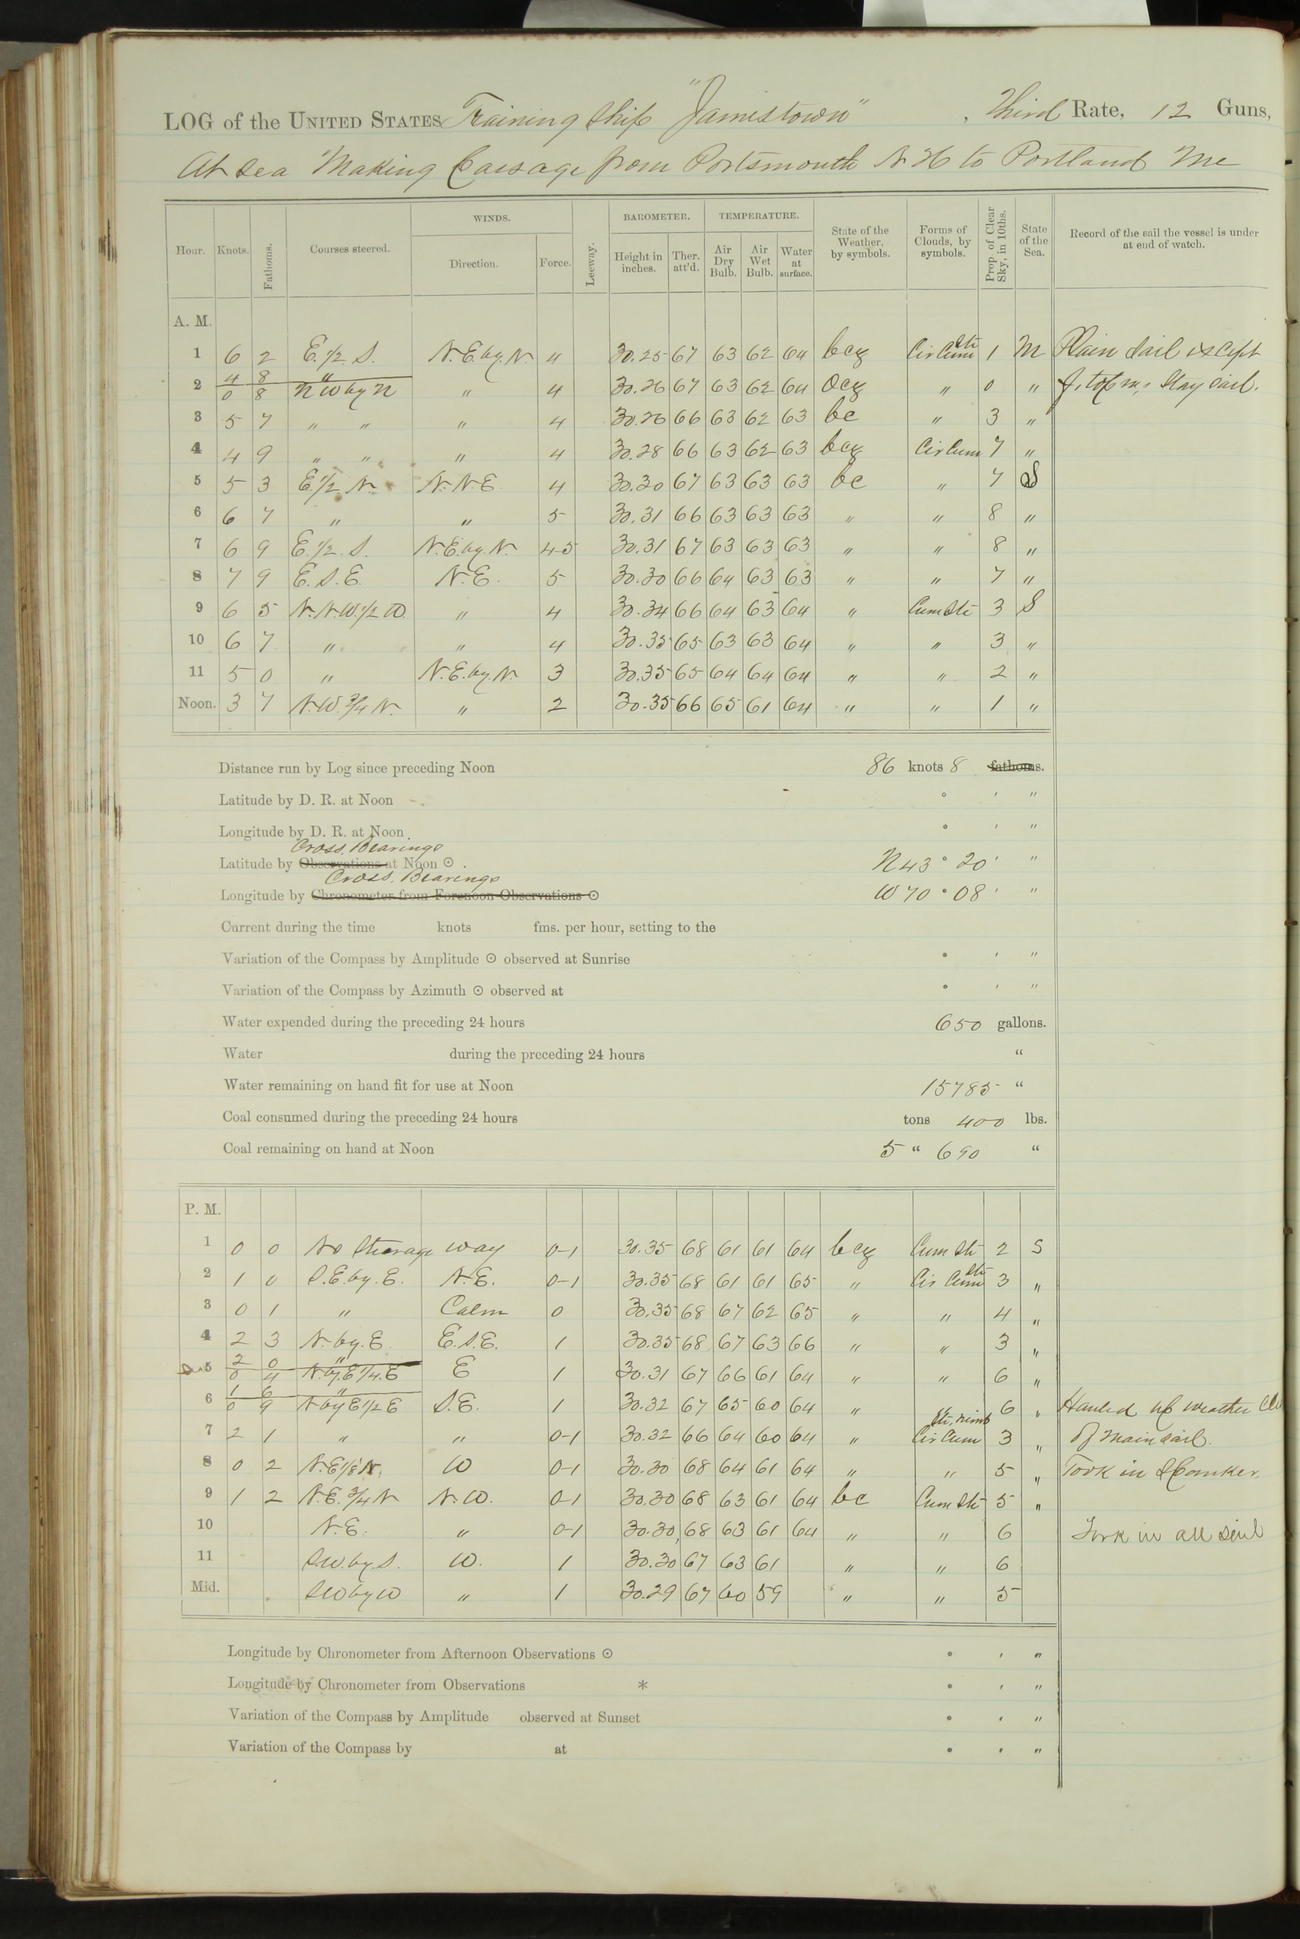 LOG of the UNITED STATES Training Ship "Jamestown", Third Rate, 12 Guns,
At Sea Making Passage from Portsmouth N H to Portland Me
Hour. Knots. Fathoms. Courses steered. WINDS. Direction. Force. Leeway. BAROMETER. Height in inches. Ther. att'd. TEMPERATURE. Air Dry Bulb. Air Wet Bulb. Water at surface. State of the Weather, by symbols. Forms of Clouds, by symbols. Prop. of Clear Sky, in 10ths. State of the Sea. Record of the sail the vessel is under at end of watch.
A. M.
1 6 2 E. 1/2 S. N.E. by N " 30.25 67 63 62 64 bcq Cir Cum Str 1 M Plain Sail except
2 4 8 "
0 8 N W by N " 4 30.26 67 63 62 64 ocq " 0 " f. topm. Stay sail.
3 5 7 " " " 4 30.26 66 63 62 63 bc " 3 "
4 4 9 " " " 4 30.28 66 63 62 63 bcq Cir Cum 7 "
5 5 3 E 1/2 N. N.N.E. 4 30.30 67 63 63 63 bc " 7 S
6 6 7 " " 5 30.31 66 63 63 63 " " 8 "
7 6 9 E. 1/2. S. N.E. by. N. 4-5 30.31 67 63 63 63 " " 8 "
8 7 9 E.S.E. N.E. 5 30.30 66 64 63 63 " " 7 "
9 6 5 N.N.W. 1/2 W. " 4 30.34 66 64 63 64 " Cum Str 3 S
10 6 7 " " 4 30.35 65 63 63 64 " " 3 "
11 5 0 " N.E. by N. 3 30.35 65 64 64 64 " " 2 "
Noon. 3 7 N.W. 3/4 N. " 2 30.35 66 65 61 64 " " 1 "
Distance run by Log since preceding Noon 86 knots 8 fathoms.
Latitude by D. R. at Noon ° ' "
Longitude by D. R. at Noon ° ' "
Cross. Bearings
Latitude by Observations at Noon ⊙. N 43° 20' "
Cross. Bearings
Longitude by Chronometer from Forenoon Observations ⊙ W 70° 08' "
Current during the time knots fms. per hour, setting to the
Variation of the Compass by Amplitude ⊙ observed at Sunrise ° ' "
Variation of the Compass by Azimuth ⊙ observed at ° ' "
Water expended during the preceding 24 hours 650 gallons.
Water during the preceding 24 hours "
Water remaining on hand fit for use at Noon 15785 "
Coal consumed during the preceding 24 hours tons 400 lbs.
Coal remaining on hand at Noon 5 " 690 "
P. M.
1 0 0 No Steerage way 0-1 30.35 68 61 61 64 bcq Cum Str 2 S
2 1 0 S.E. by. E. N.E. 0-1 30.35 68 61 61 65 " Cir Cum Str 3 "
3 0 1 " Calm 0 30.35 68 67 62 65 " " 4 "
4 2 3 N. by. E E.S.E. 1 30.35 68 67 63 66 " " 3 "
5 2 0 "
0 4 N. by. E 1/4. E E 1 30.31 67 66 61 64 " " 6 "
6 1 6 "
0 9 N by E 1/2 E S.E. 1 30.32 67 65 60 64 " " 6 " Hauled up weather
7 2 1 " " 0-1 30.32 66 64 60 64 " Cir Cum Str. nimb 3 " of mainsail.
8 0 2 N.E 1/8 N. W 0-1 30.30 68 64 61 64 " " 5 " Took in Spanker.
9 1 2 N.E. 3/4 N N.W. 0-1 30.30 68 63 61 64 bc Cum Str 5 "
10 N.E. " 0-1 30.30 68 63 61 64 " " 6 Took in all sail
11 SW. by. S. W. 1 30.30 67 63 61 " " 6
Mid. SW by W " 1 30.29 67 60 59 " " 5
Longitude by Chronometer from Afternoon Observations ⊙ ° ' "
Longitude by Chronometer from Observations * ° ' "
Variation of the Compass by Amplitude observed at Sunset ° ' "
Variation of the Compass by at ° ' "